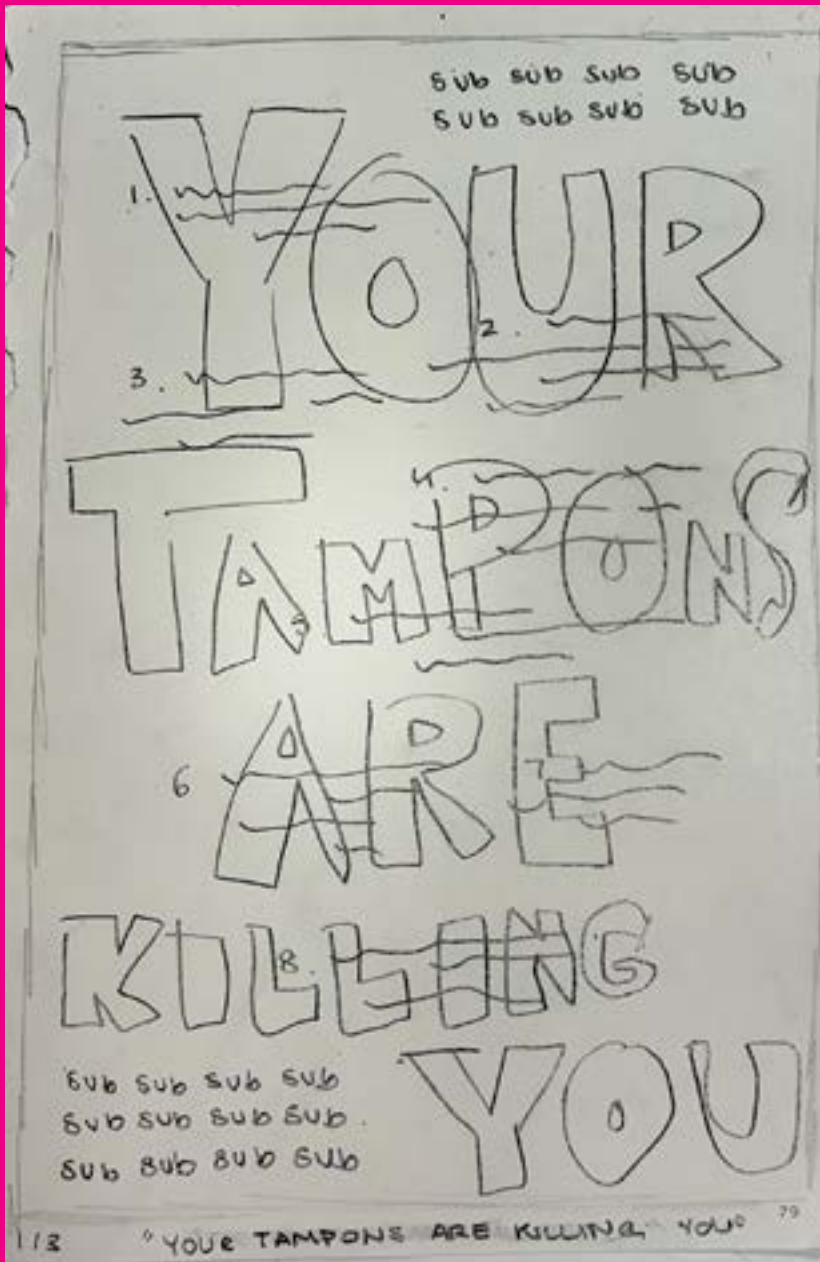 sub sub sub sub
sub sub sub sub
YOUR
1.
2.
3.
TAMPONS
4.
5
ARE
6
7
KILLING
8.
YOU
sub sub sub sub
sub sub sub sub.
sub sub sub sub
79
1/3 "YOUR TAMPONS ARE KILLING YOU"